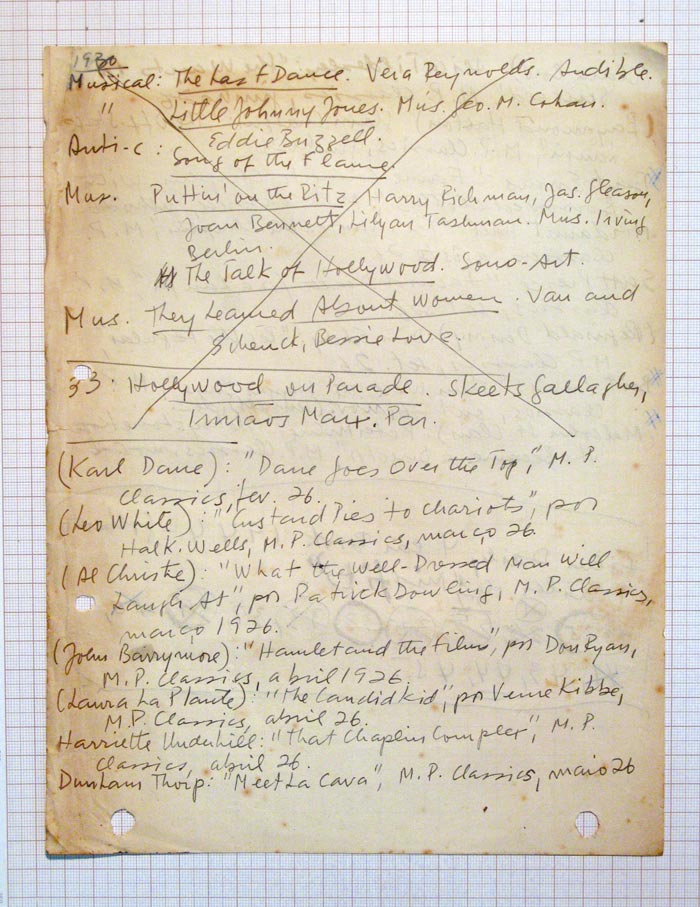 1930
Musical: The Last Dance. Vera Reynolds. Audible.
" Little Johnny Jones. Mus. Geo. M. Cohan.
Eddie Buzzell.
Anti-c: Song of the Flame.
Mus. Puttin' on the Ritz. Harry Richman, Jas. Gleason,
Joan Bennett, Lilyan Tashman. Mus. Irving
Berlin.
The Talk of Hollywood. Sono-Art.
Mus. They Learned About Women. Van and
Schenck, Bessie Love.
33: Hollywood on Parade. Skeets Gallagher,
Irmãos Marx. Par.
(Karl Dane): "Dane Goes Over the Top", M. P.
Classics, fev. 26.
(Leo White): "Custard Pies to Chariots", por
Halk. Wells, M. P. Classics, março 26.
(Al Christie): "What the Well-Dressed Man Will
Laugh At", por Patrick Dowling, M. P. Classics,
março 1926.
(John Barrymore): "Hamlet and the Films", por Don Ryan,
M. P. Classics, abril 1926.
(Laura La Plante): "The Candid Kid", por Verne Kibbe,
M. P. Classics, abril 26.
Harriette Underhill: "That Chaplin Complex", M. P.
Classics, abril 26.
Dunham Thorp: "Meet La Cava", M. P. Classics, maio 26